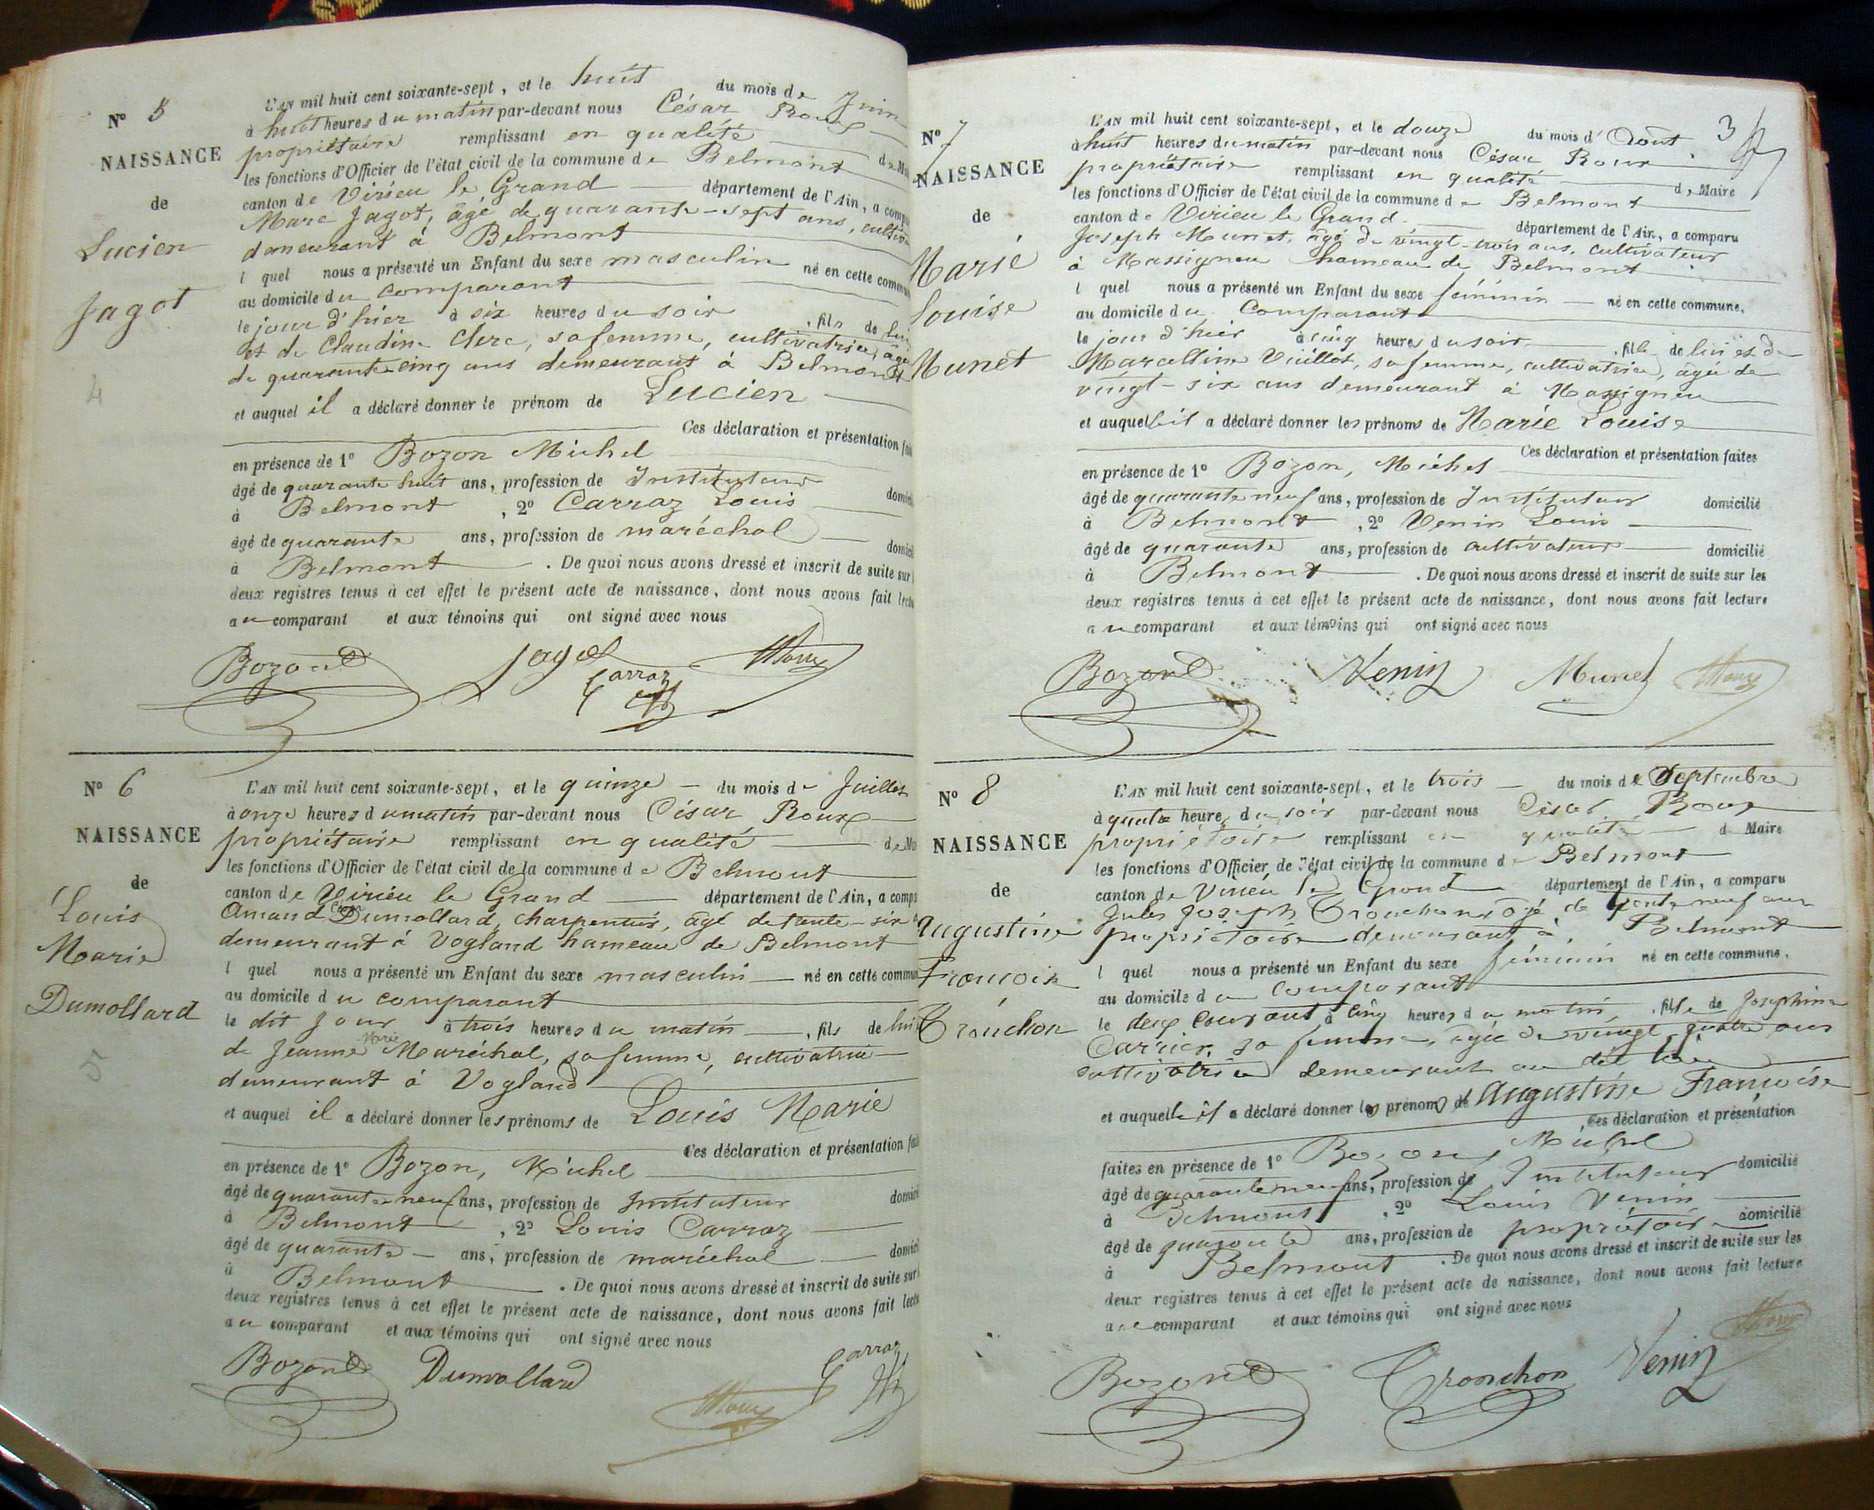 N° 5
NAISSANCE
de
Lucien
Jagot
4
L'AN mil huit cent soixante-sept, et le huit du mois de Juin
à huit heures du matin par-devant nous César Roux
propriétaire remplissant en qualité de
les fonctions d'Officier de l'état civil de la commune de Belmont
canton de Virieu le Grand département de l'Ain, a
Marc Jagot, âgé de quarante-sept ans,
demeurant à Belmont
lequel nous a présenté un Enfant du sexe masculin né en cette
au domicile du comparant
le jour d'hier à six heures du soir, fils de lui
et de Claudine Clerc, sa femme, cultivatrice, âgée
de quarante cinq ans demeurant à Belmont
et auquel il a déclaré donner le prénom de Lucien
Ces déclaration et présentation
en présence de 1° Bozon Michel
âgé de quarante huit ans, profession de Instituteur
à Belmont, 2° Carraz Louis
âgé de quarante ans, profession de maréchal
à Belmont. De quoi nous avons dressé et inscrit de suite sur
deux registres tenus à cet effet le présent acte de naissance, dont nous avons fait
au comparant et aux témoins qui ont signé avec nous
Bozon Jagot Carraz Roux
N° 6
NAISSANCE
de
Louis
Marie
Dumollard
5
L'AN mil huit cent soixante-sept, et le quinze du mois de Juillet
à onze heures du matin par-devant nous César Roux
propriétaire remplissant en qualité de
les fonctions d'Officier de l'état civil de la commune de Belmont
canton de Virieu le Grand département de l'Ain, a
Dumollard, charpentier, âgé de trente-six
demeurant à Vogland hameau de Belmont
lequel nous a présenté un Enfant du sexe masculin né en cette
au domicile du comparant
le dit jour à trois heures du matin, fils de lui
de Jeanne Marie Maréchal, sa femme, cultivatrice
demeurant à Vogland
et auquel il a déclaré donner les prénoms de Louis Marie
Ces déclaration et présentation
en présence de 1° Bozon, Michel
âgé de quarante neuf ans, profession de Instituteur
à Belmont, 2° Louis Carraz
âgé de quarante ans, profession de maréchal
à Belmont. De quoi nous avons dressé et inscrit de suite sur
deux registres tenus à cet effet le présent acte de naissance, dont nous avons fait
au comparant et aux témoins qui ont signé avec nous
Bozon Dumollard Roux Carraz
3
N° 7
NAISSANCE
de
Marie
Louise
Munet
L'AN mil huit cent soixante-sept, et le douze du mois d'Aout
à huit heures du matin par-devant nous César Roux
propriétaire remplissant en qualité de Maire
les fonctions d'Officier de l'état civil de la commune de Belmont
canton de Virieu le Grand département de l'Ain, a comparu
Joseph Munet, âgé de vingt-trois ans, cultivateur
à Massigneu hameau de Belmont
lequel nous a présenté un Enfant du sexe féminin né en cette commune,
au domicile du Comparant
le jour d'hier à cinq heures du soir, fille de lui et de
Marcelline Vuillot, sa femme, cultivatrice, âgée de
vingt-six ans demeurant à Massigneu
et auquel il a déclaré donner les prénoms de Marie Louise
Ces déclaration et présentation faites
en présence de 1° Bozon, Michel
âgé de quarante neuf ans, profession de Instituteur domicilié
à Belmont, 2° Venin Louis
âgé de quarante ans, profession de cultivateur domicilié
à Belmont. De quoi nous avons dressé et inscrit de suite sur les
deux registres tenus à cet effet le présent acte de naissance, dont nous avons fait lecture
au comparant et aux témoins qui ont signé avec nous
Bozon Venin Munet Roux
N° 8
NAISSANCE
de
Augustine
Françoise
Tronchon
L'AN mil huit cent soixante-sept, et le trois du mois de Septembre
à quatre heures du soir par-devant nous César Roux
propriétaire remplissant en qualité de Maire
les fonctions d'Officier de l'état civil de la commune de Belmont
canton de Virieu le Grand département de l'Ain, a comparu
Jules Joseph Tronchon âgé de trente neuf ans
propriétaire demeurant à Belmont
lequel nous a présenté un Enfant du sexe féminin né en cette commune,
au domicile du comparant
le deux courant à cinq heures du matin, fille de Joséphine
Carrier, sa femme, âgée de vingt quatre ans
cultivatrice demeurant au dit lieu
et auquelle il a déclaré donner les prénoms de Augustine Françoise
Ces déclaration et présentation
faites en présence de 1° Bozon Michel
âgé de quarante neuf ans, profession de Instituteur domicilié
à Belmont, 2° Louis Venin
âgé de quarante ans, profession de propriétaire domicilié
à Belmont. De quoi nous avons dressé et inscrit de suite sur les
deux registres tenus à cet effet le présent acte de naissance, dont nous avons fait lecture
au comparant et aux témoins qui ont signé avec nous
Bozon Tronchon Venin Roux